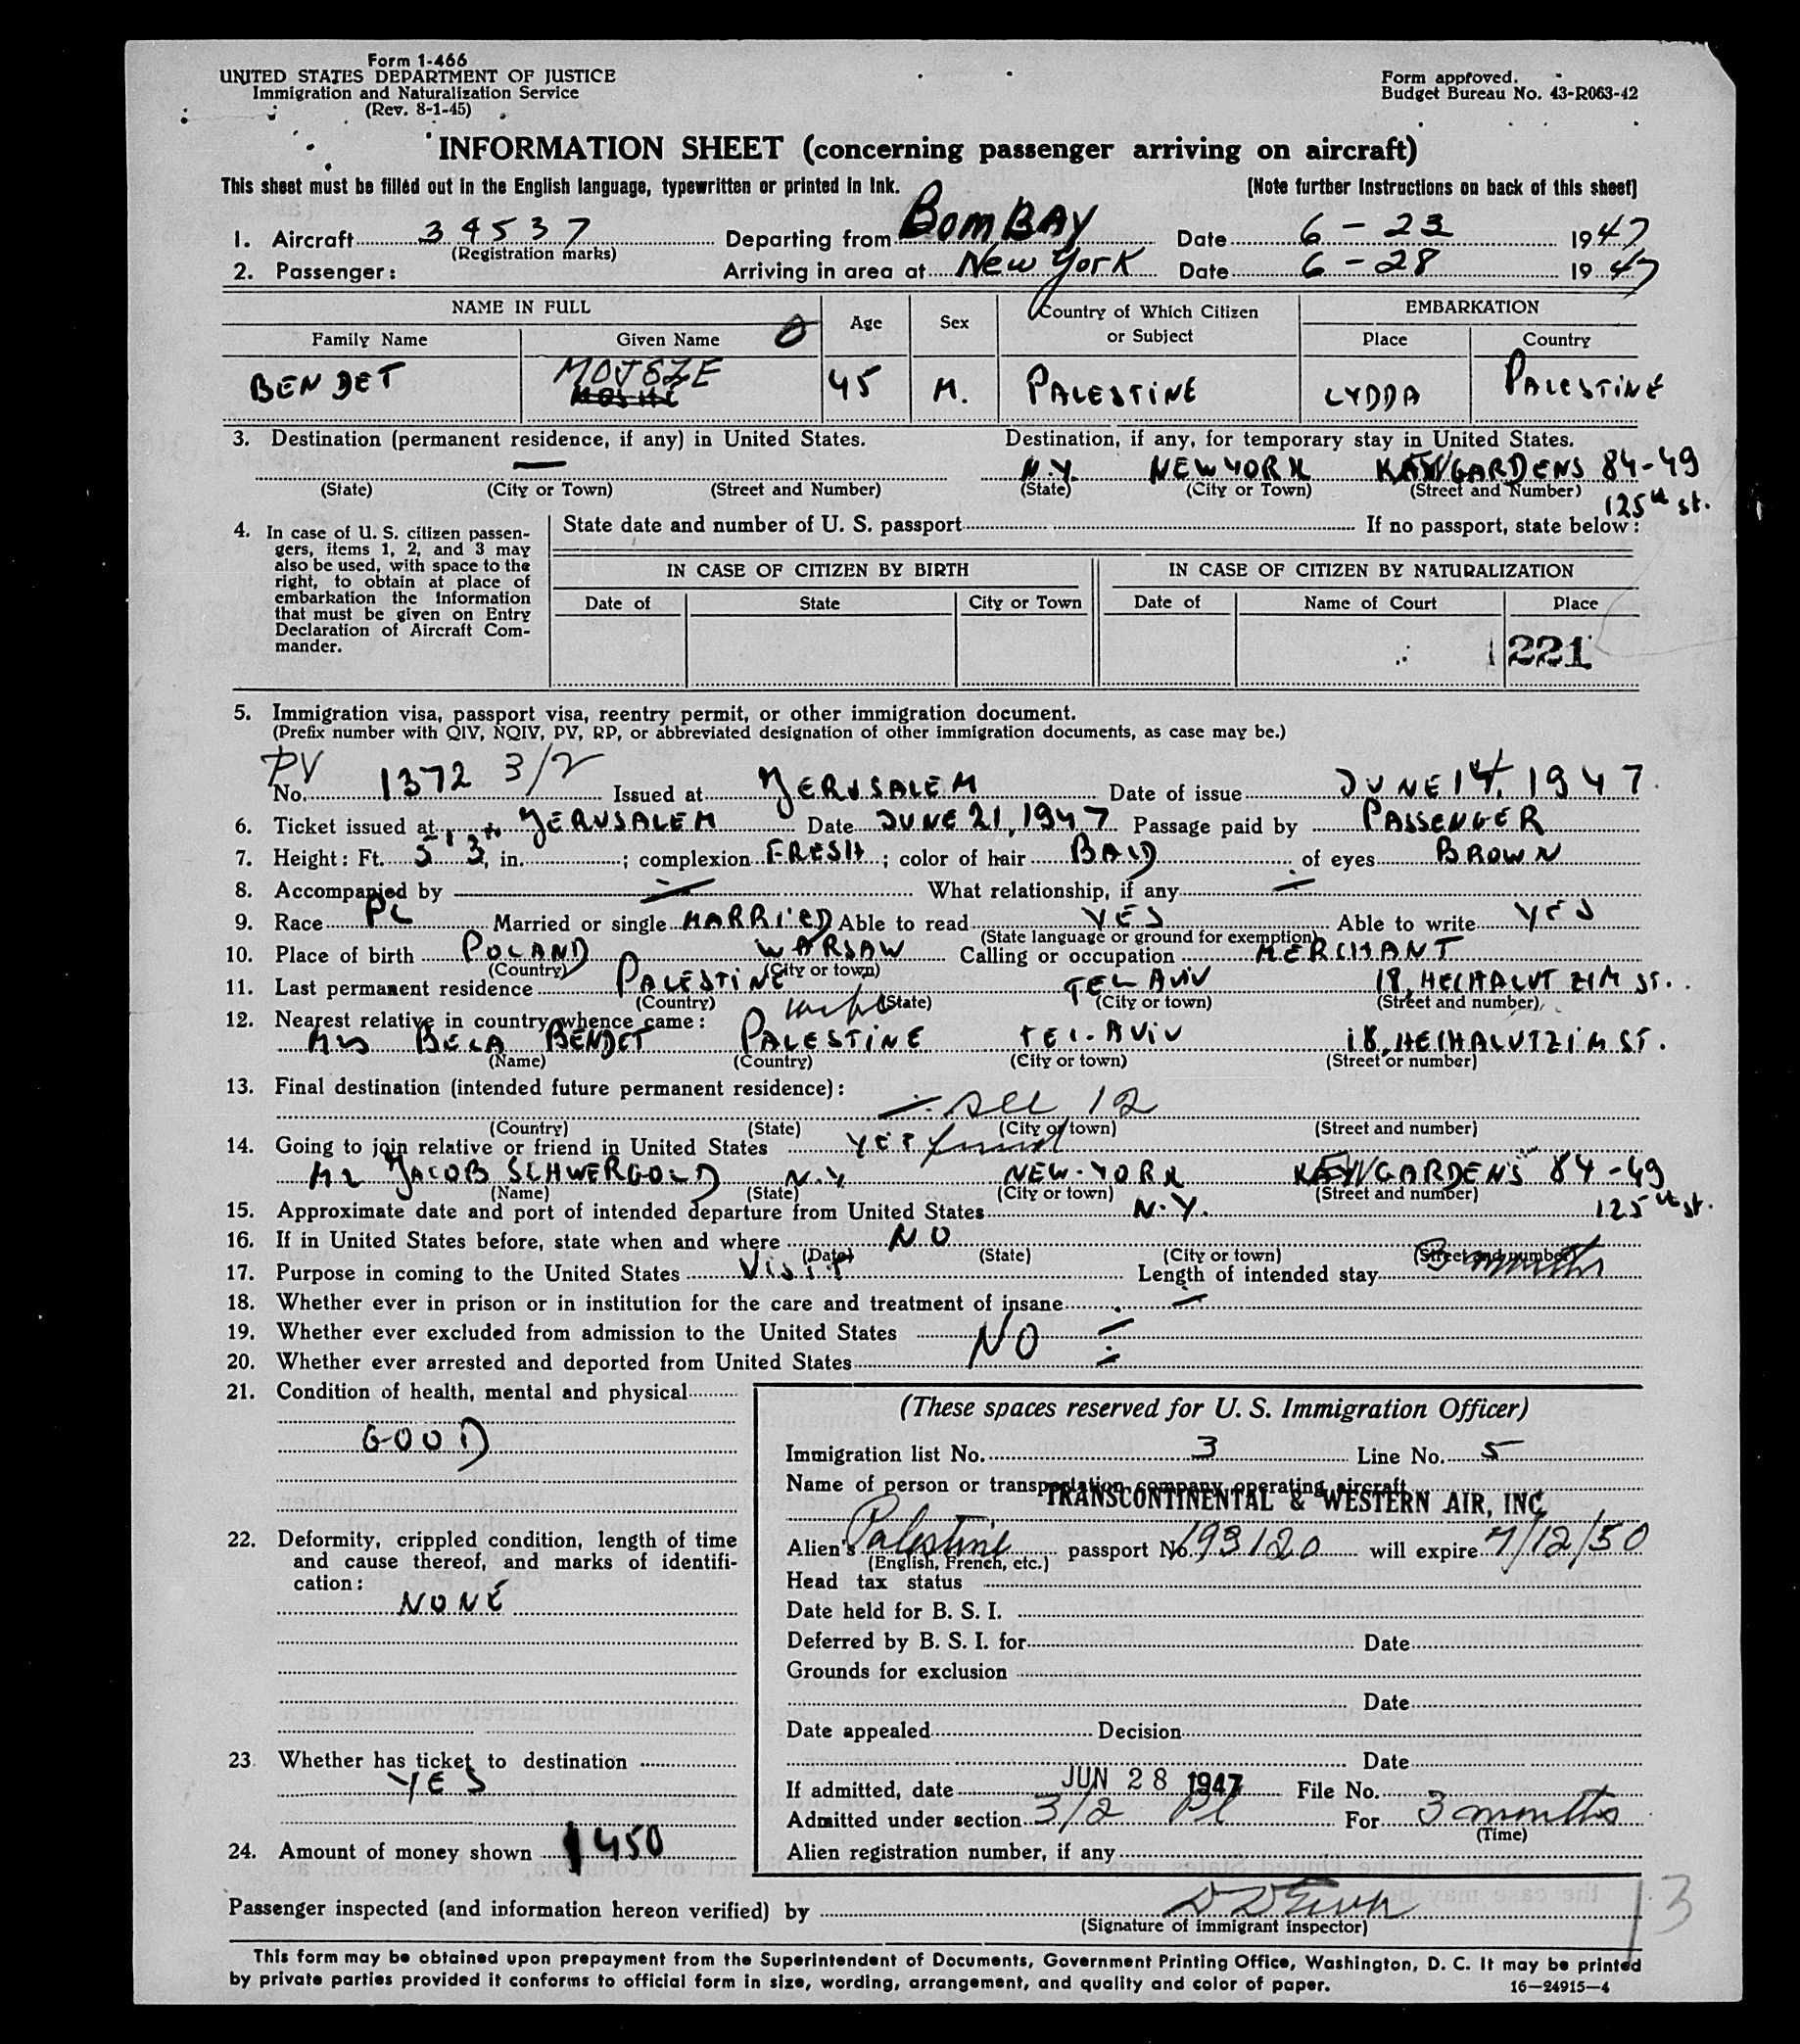 Form 1-466
UNITED STATES DEPARTMENT OF JUSTICE
Immigration and Naturalization Service
(Rev. 8-1-45)
Form approved.
Budget Bureau No. 43-R063-42
INFORMATION SHEET (concerning passenger arriving on aircraft)
This sheet must be filled out in the English language, typewritten or printed in ink. [Note further instructions on back of this sheet]
1. Aircraft 34537 Departing from BOMBAY Date 6-23 1947
(Registration marks)
2. Passenger: Arriving in area at New York Date 6-28 1947
NAME IN FULL Age Sex Country of Which Citizen or Subject EMBARKATION
Family Name Given Name Place Country
BENDET MOJSZE 45 M. PALESTINE LYDDA PALESTINE
3. Destination (permanent residence, if any) in United States. Destination, if any, for temporary stay in United States.
— N.Y. NEW YORK KEW GARDENS 84-49
(State) (City or Town) (Street and Number) (State) (City or Town) (Street and Number)
125th St.
4. In case of U. S. citizen passengers, items 1, 2, and 3 may also be used, with space to the right, to obtain at place of embarkation the information that must be given on Entry Declaration of Aircraft Commander.
State date and number of U. S. passport If no passport, state below:
IN CASE OF CITIZEN BY BIRTH IN CASE OF CITIZEN BY NATURALIZATION
Date of State City or Town Date of Name of Court Place
221
5. Immigration visa, passport visa, reentry permit, or other immigration document.
(Prefix number with QIV, NQIV, PV, RP, or abbreviated designation of other immigration documents, as case may be.)
PV
No. 1372 3/2 Issued at JERUSALEM Date of issue JUNE 14, 1947.
6. Ticket issued at JERUSALEM Date JUNE 21, 1947 Passage paid by PASSENGER
7. Height: Ft. 5' 3, in. ; complexion FRESH ; color of hair BALD of eyes BROWN
8. Accompanied by What relationship, if any
9. Race PL Married or single MARRIED Able to read YES Able to write YES
(State language or ground for exemption)
10. Place of birth POLAND WARSAW Calling or occupation MERCHANT
(Country) (City or town)
11. Last permanent residence PALESTINE TEL AVIV 18, HECHALUTZIM ST.
(Country) (State) (City or town) (Street and number)
12. Nearest relative in country whence came:
MRS BELA BENDET PALESTINE TEL-AVIV 18, HECHALUTZIM ST.
(Name) (Country) (City or town) (Street or number)
13. Final destination (intended future permanent residence):
See 12
(Country) (State) (City or town) (Street and number)
14. Going to join relative or friend in United States YES friend
MR JACOB SCHWERGOLD N.Y. NEW-YORK KEW GARDENS 84-49
(Name) (State) (City or town) (Street and number)
125th St.
15. Approximate date and port of intended departure from United States N.Y.
16. If in United States before, state when and where NO
(Date) (State) (City or town) (Street and number)
17. Purpose in coming to the United States VISIT Length of intended stay 3 months
18. Whether ever in prison or in institution for the care and treatment of insane
19. Whether ever excluded from admission to the United States NO
20. Whether ever arrested and deported from United States
21. Condition of health, mental and physical
GOOD
22. Deformity, crippled condition, length of time and cause thereof, and marks of identification:
NONE
23. Whether has ticket to destination
YES
24. Amount of money shown $450
(These spaces reserved for U. S. Immigration Officer)
Immigration list No. 3 Line No. 5
Name of person or transportation company operating aircraft
TRANSCONTINENTAL & WESTERN AIR, INC
Alien's Palestine passport No. 193120 will expire 7/12/50
(English, French, etc.)
Head tax status
Date held for B. S. I.
Deferred by B. S. I. for Date
Grounds for exclusion
Date
Date appealed Decision
Date
If admitted, date JUN 28 1947 File No.
Admitted under section 3/2 Pl For 3 months
(Time)
Alien registration number, if any
Passenger inspected (and information hereon verified) by
(Signature of immigrant inspector)
13
This form may be obtained upon prepayment from the Superintendent of Documents, Government Printing Office, Washington, D. C. It may be printed
by private parties provided it conforms to official form in size, wording, arrangement, and quality and color of paper. 16—24915—4